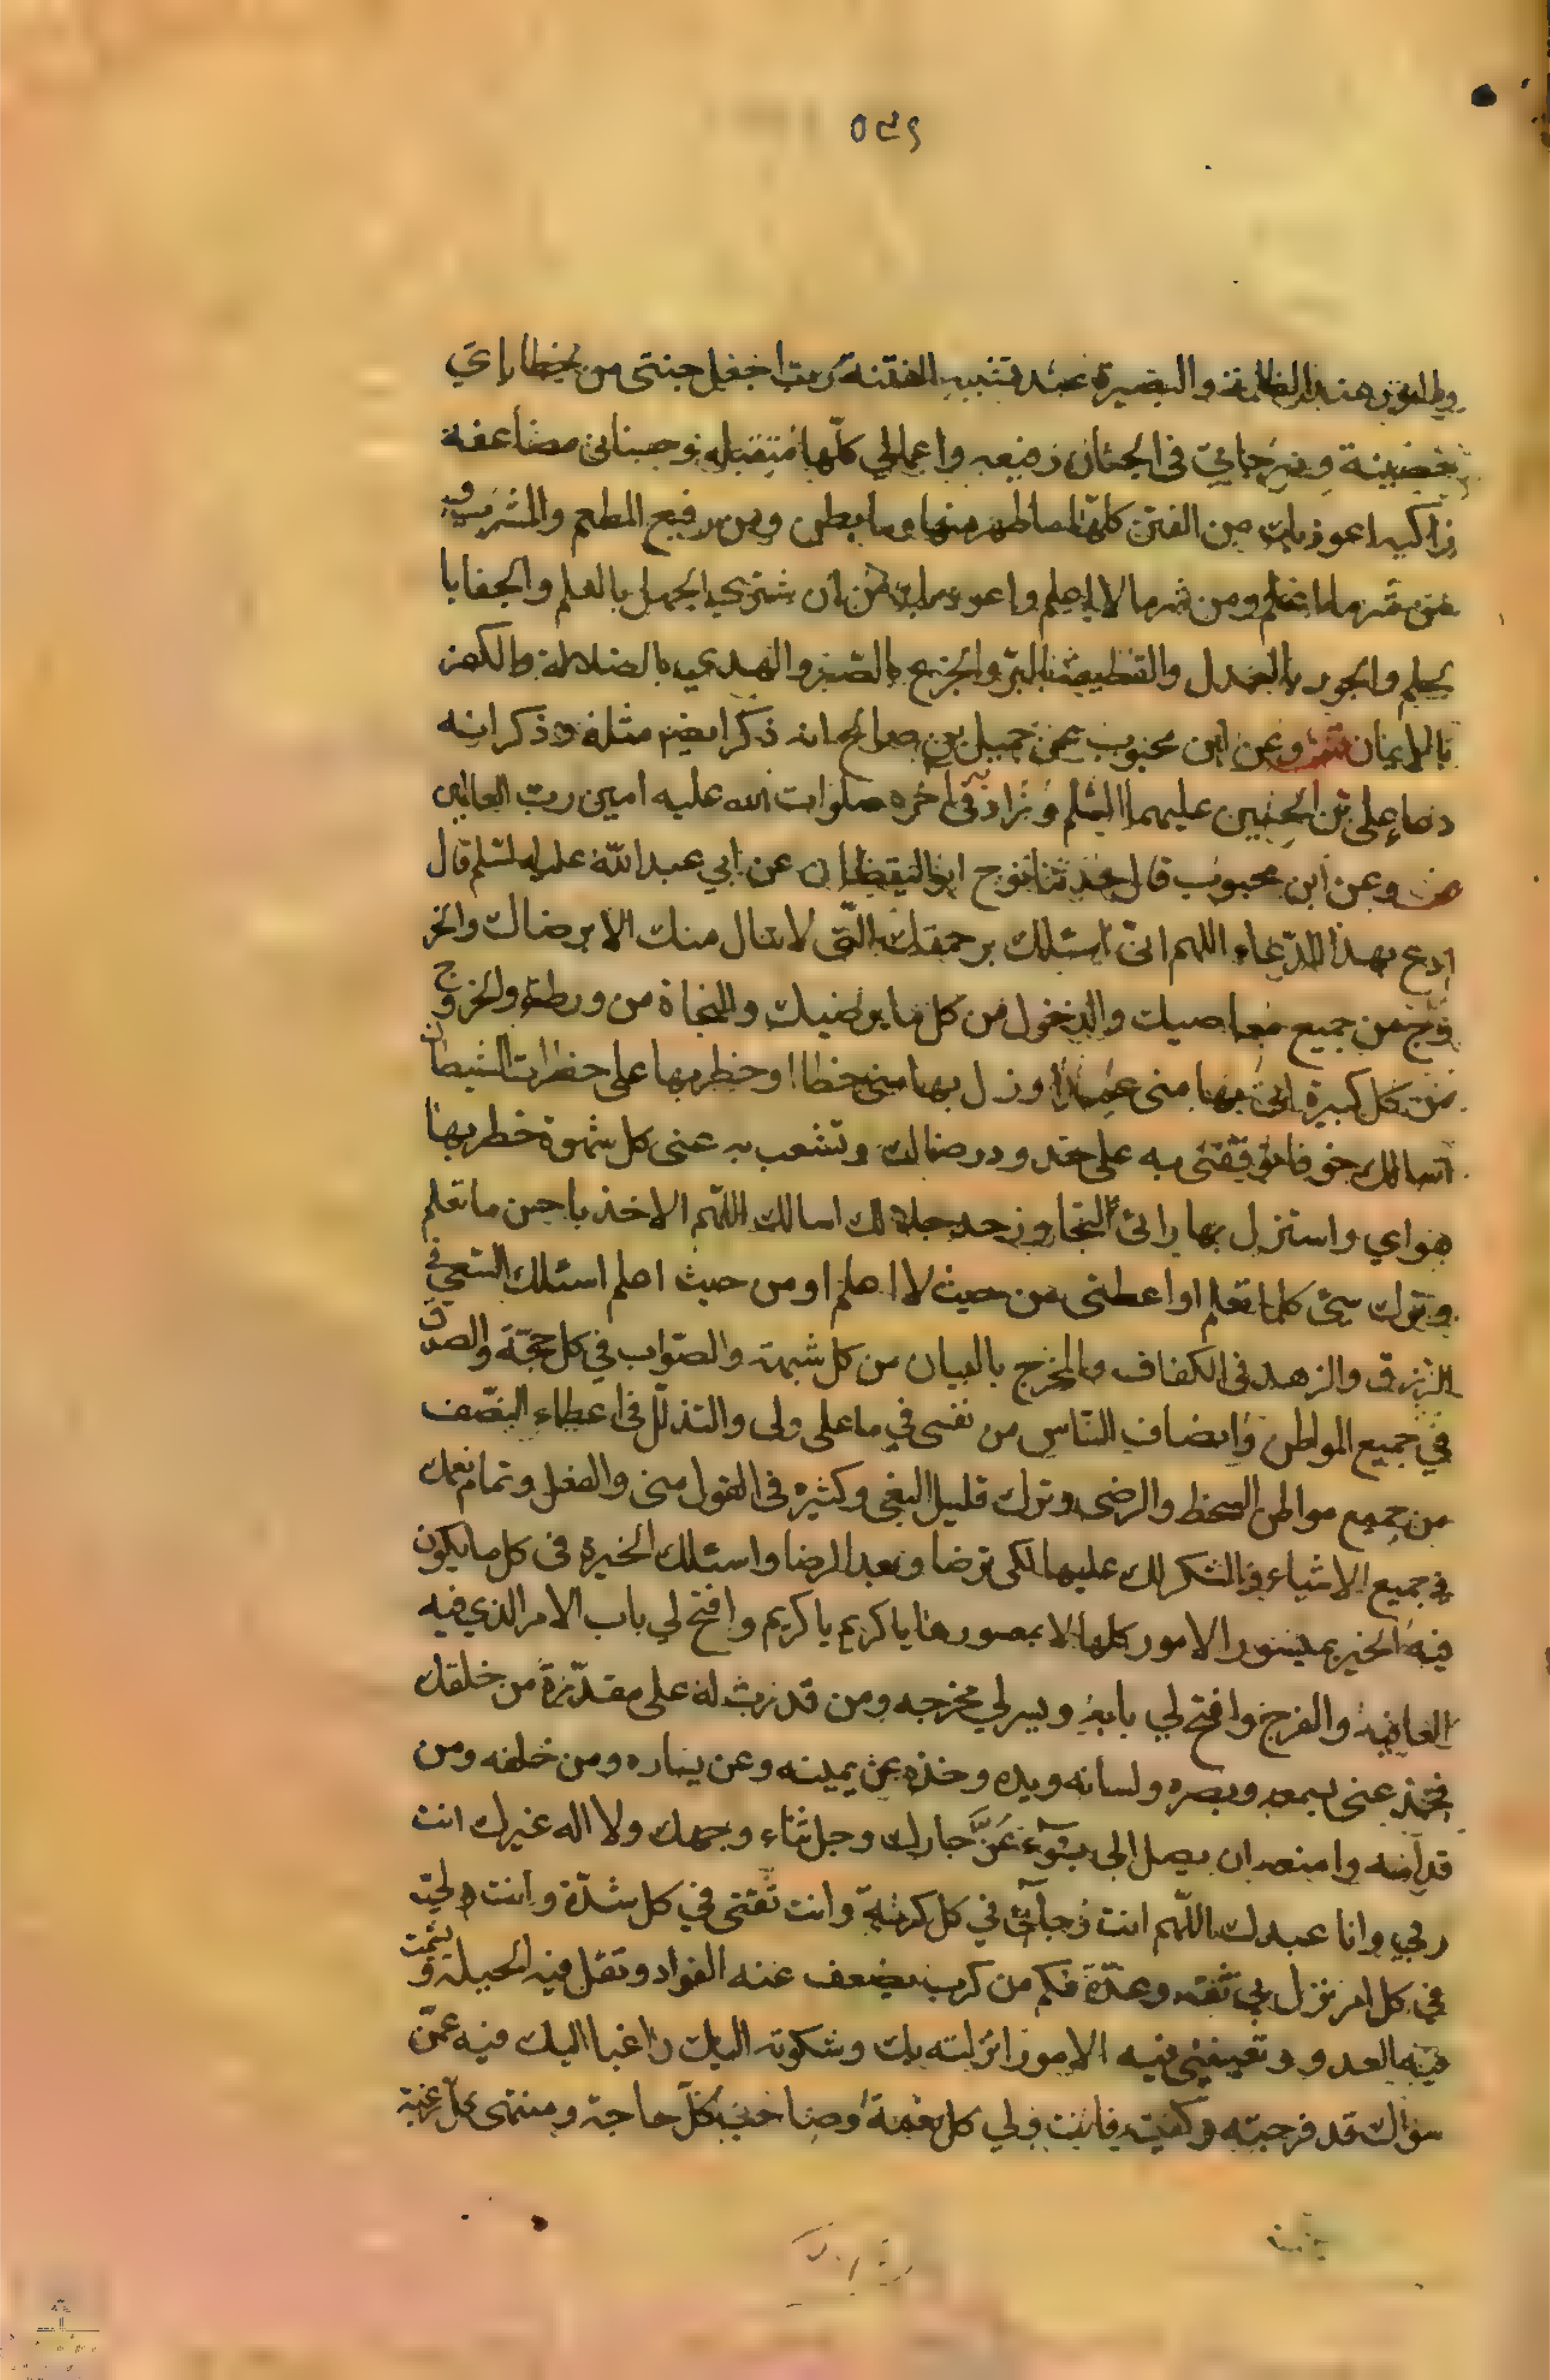 ٥٤٩
والنور عند الظلمة والبصيرة عند تشبه الفتنة رب اجعل جنتى من خطاياي
حصينة ودرجاتي فى الجنان رفيعه واعمالي كلّها متقبله وحسناتى مضاعفة
زاكيه اعوذ بك من الفتن كلّها ما ظهر منها وما بطن ومن رفيع المطعم والمشرب و
من شر ما اعلم ومن شر ما لا اعلم واعوذ بك من ان شترى الجهل بالعلم والجفا با
لحلم والجور بالعدل والقطيعة بالبرّ والجزع بالصّبر والهدي بالضلالة والكفر
بالايمان وعن ابن محبوب عن جميل بن صالح انه ذكر ايضا مثله وذكر انه
دعاء على بن الحسين عليهما السّلم وزاد فى اخره صلوات الله عليه امين رب العالمين
وعن ابن محبوب قال حدثنا نوح ابو اليقظان عن ابي عبد الله عليه السّلم قال
ادع بهذا الدّعاء اللهم انى اسئلك برحمتك التّى لا تنال منك الا برضاك والخر
وج من جميع معاصيك والدخول من كل ما يرضيك والنجاة من ورطة والخروج
من كل كبيرة اتى بها منى عمدا او زل بها منى خطاا او خطر بها على خطرات الشيطان
اسالك خوفا توقفنى به على حدود رضاك وتشعب به عنى كل شهوة خطر بها
هواي واستزل بها رائى التجاوز حد حلالك اسالك اللهم الاخذ باحسن ما تعلم
وترك سيئ كلما تعلم او اعطنى من حيث لا اعلم او من حيث اعلم اسئلك السّعي فى
الرزق والزهد فى الكفاف والمخرج بالبيان من كل شبهة والصّواب في كل حجّة والصدق
في جميع المواطن وانصاف النّاس من نفسى في ما على ولى والتذلّل فى اعطاء النصّف
من جميع مواطن السخط والرضى وترك قليل البغى وكثيره فى القول منى والفعل وتمام نعمك
فى جميع الاشياء والشكر لك عليها لكى ترضا وبعد الرضا واسئلك الخيرة فى كل ما يكون
فيه الخير بميسور الامور كلها لا بمعسورها يا كريم يا كريم وافتح لي باب الامر الذي فيه
العافيه والفرج وافتح لي بابه ويسر لي مخرجه ومن قدرت له على مقدّرة من خلقك
فخذ عنى بسمعه وبصره ولسانه ويده وخذه عن يمينه وعن يساره ومن خلفه ومن
قدّامه وامنعه ان يصل الى بسوء عزّ جارك وجل ثناء وجهك ولا اله غيرك انت
ربي وانا عبدك اللّهم انت رجائى في كل كربة وانت ثقتى في كل شدّة وانت لى
في كل امر نزل بي ثقة وعدّة فكم من كرب يضعف عنه الفواد وتقل فيه الحيلة و يشمت
فيه العدو وتعيينى فيه الامور انزلته بك وشكوته اليك راغبا اليك فيه عمّن
سواك قد فرجته وكفيته فانت ولي كل نعمة وصاحب كلّ حاجة ومنتهى كلّ رغبة